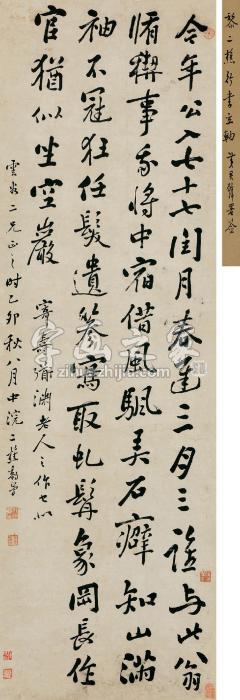 黎二樵行書立軸
今年公入七十七閏月春逢三月三誰與此翁
脩禊事我將中宿借風颿美石癖知山滿
袖不冠狂任髮遺簪寫取虬髯象岡長作
官猶似坐空巖
寄壽淵老人之作
二兄正之時乙卯秋八月中浣二樵黎簡